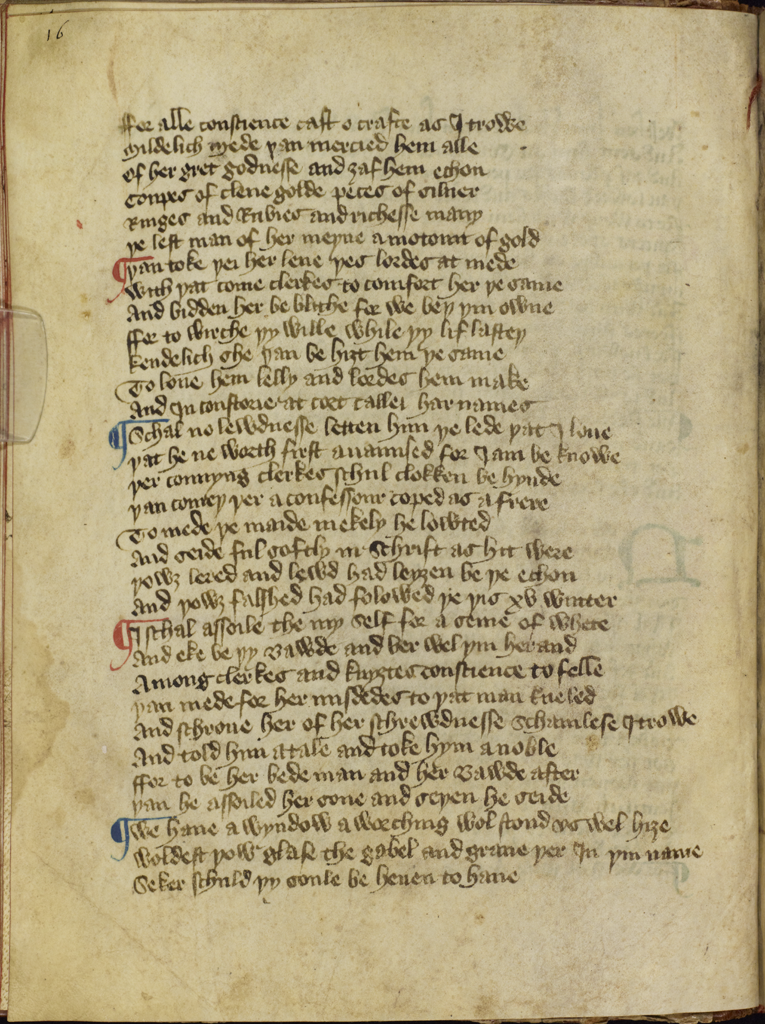 16
ffor alle conscience cast o crafte as I trowe
Mildelich mede þan mercied hem alle
Of her gret godnesse and ȝaf hem echon
Coupes of clene golde peces of siluer
Ringes and Rubies and richesse many
þe lest man of her meyne a motoun of gold
¶ þan toke þei her leue þes lordes at mede
With þat come clerkes to comfort her þe same
And bidden her be blithe for we beþ þin owne
ffor to wirche þy wille while þy lif lasteþ
Kendelich she þan be hiȝt hem þe same
To loue hem lelly and lordes hem make
And In constorie at cort callei har names
¶ Schal no lewdnesse letten him þe lede þat I loue
þat he ne worth first auaunsed for I am be knowe
þer connyng clerkes schul clokken be hynde
þan comeþ þer a confessour coped as a frere
To mede þe maide mekely he lowted
And seide ful softly in Schrift as hit were
þowȝ lered and lewd had leyȝen be þe echon
And þowȝ falshed had folowed þe þis xv winter
¶ I schal assoile the my self for a seme of whete
And eke be þy Bawde and ber wel þin herand
Among clerkes and knyȝtes conscience to felle
þan mede for her misdedes to þat man kneled
And schroue her of her schrewdnesse Schamlese I trowe
And told him a tale and toke hym a noble
ffor to be her bede man and her Bawde after
þan he assoiled her sone and seþen he seide
¶ We haue a wyndow a worching wol stond vs wel hiȝe
Woldest þow glase the gabel and graue þer In þin name
Seker schuld þy soule be heuen to haue